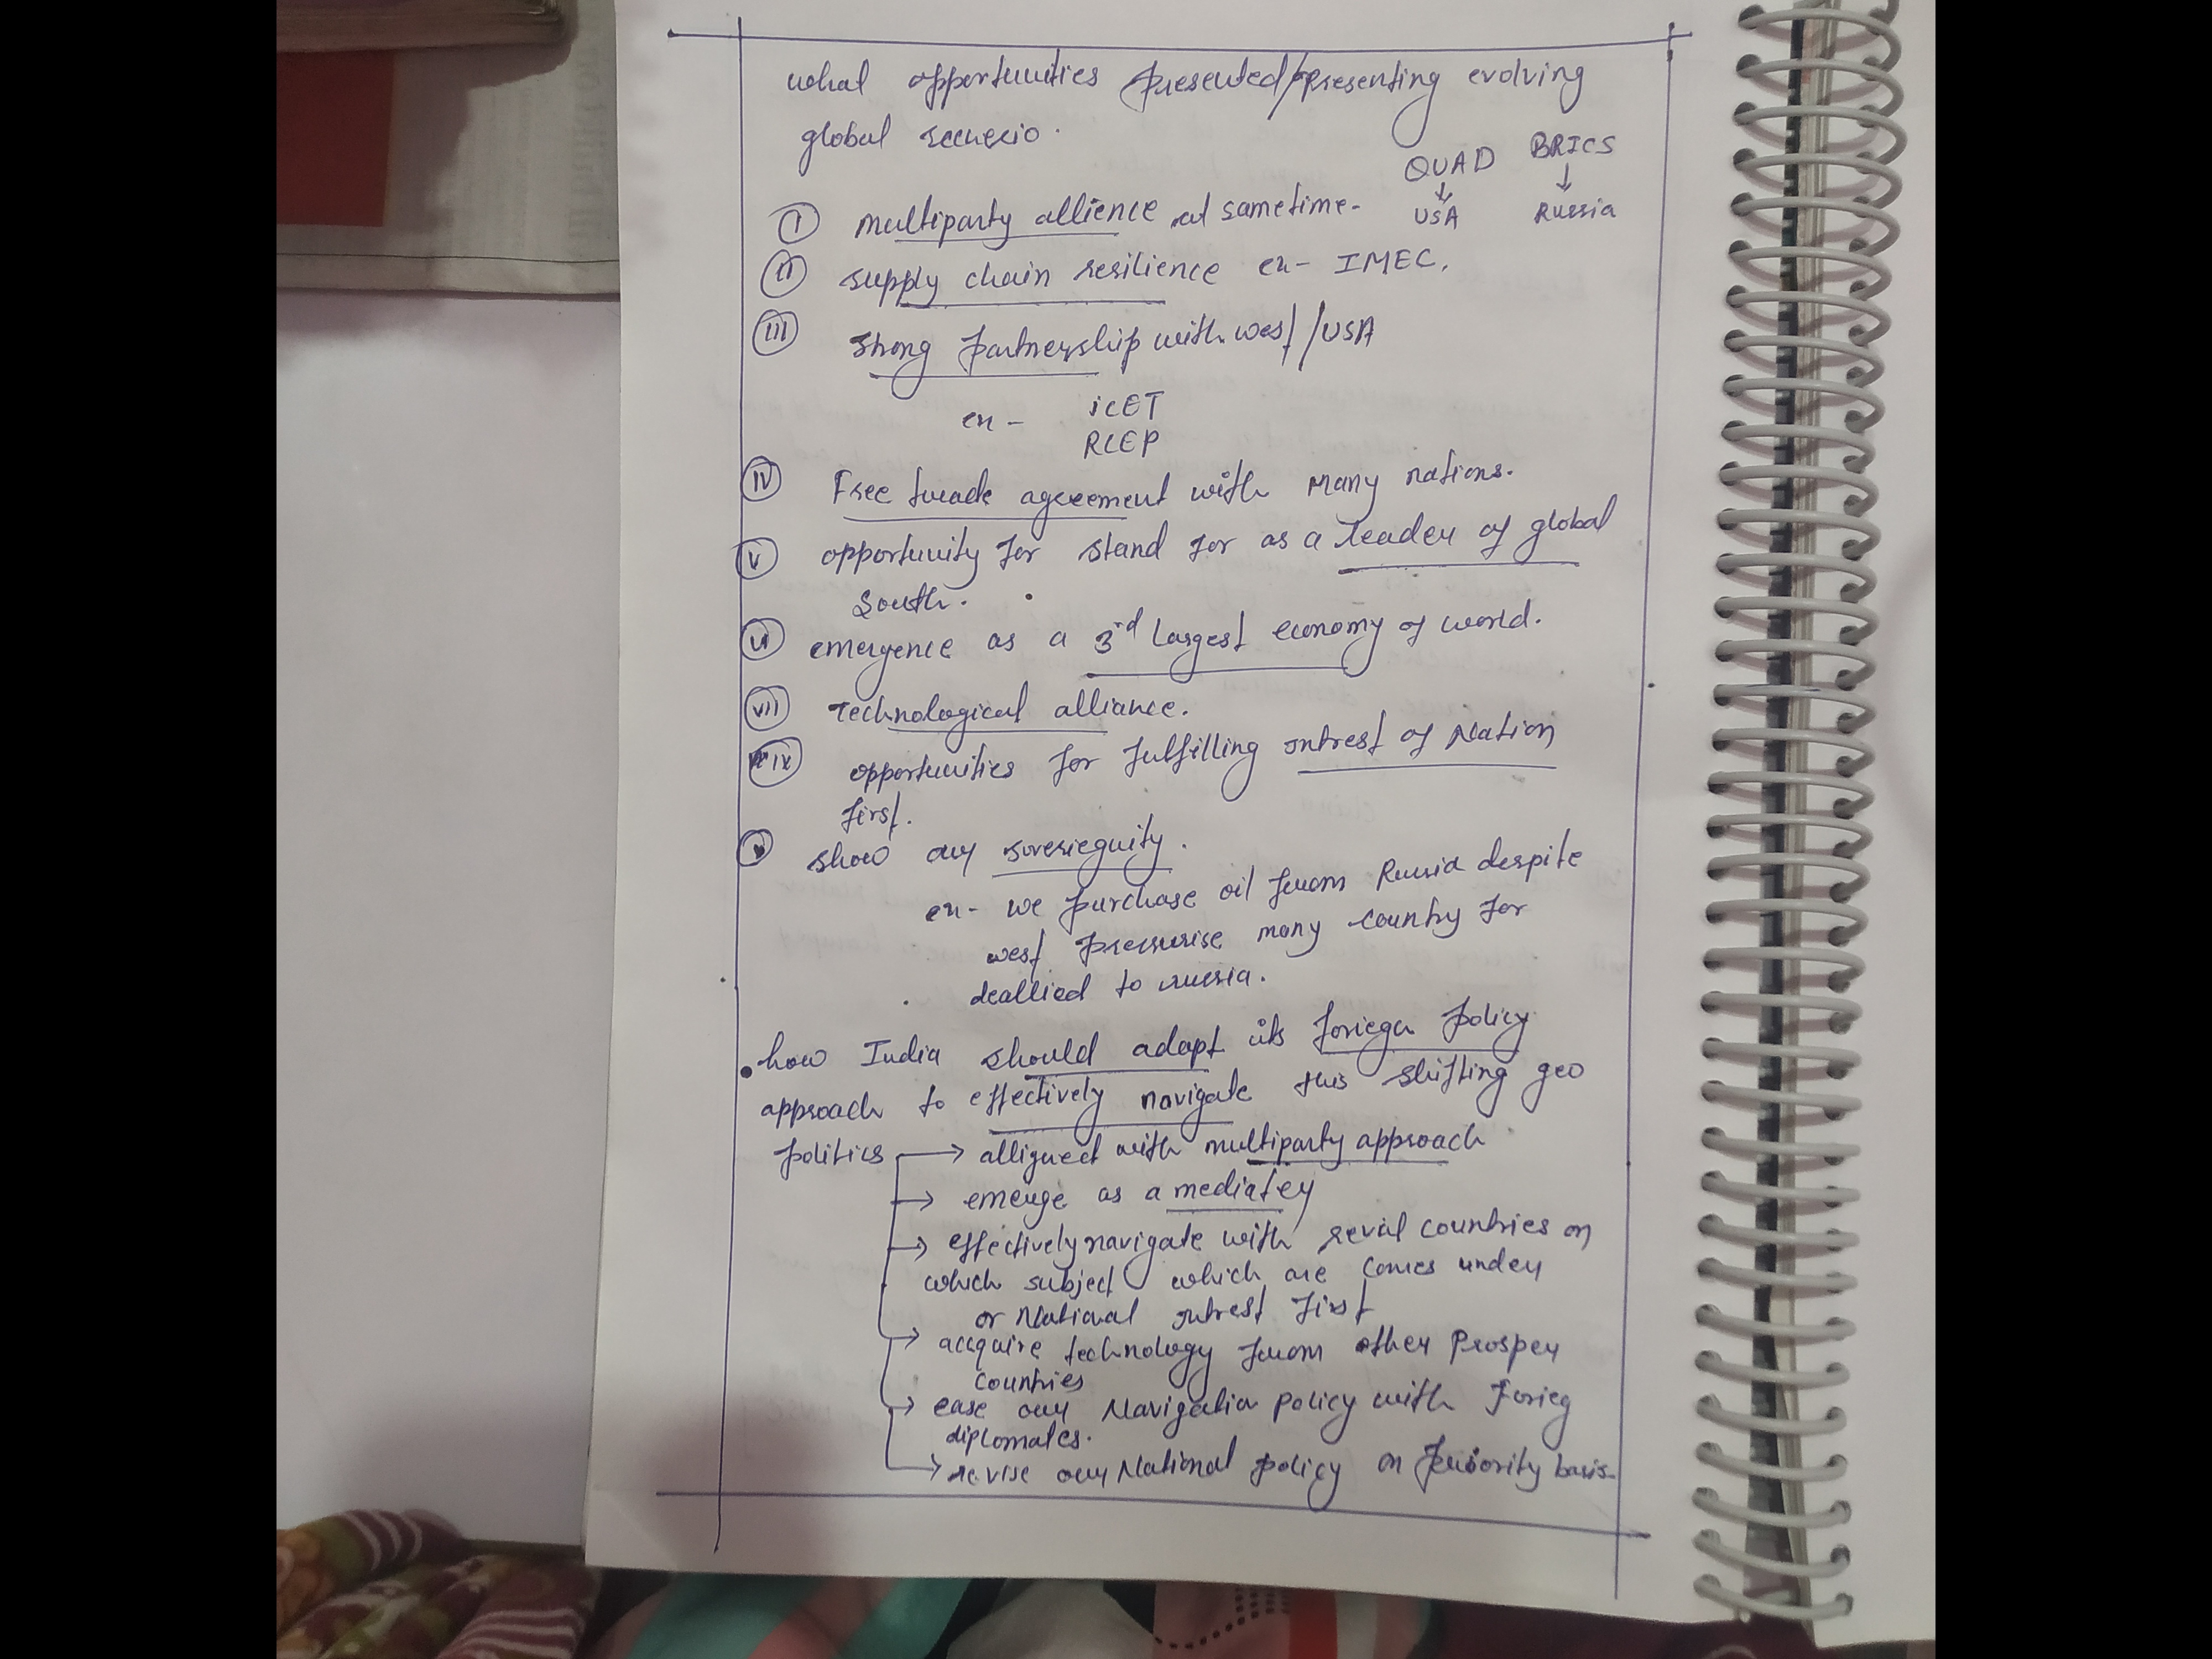 what opportunities presented/presenting evolving
global scenerio.
QUAD BRICS
↓ ↓
USA Russia
(I) multiparty allience at sametime-
(II) supply chain resilience ex- IMEC.
(III) strong partnership with west/USA
ex- iCET
RCEP
(IV) Free trade agreement with many nations.
(V) opportunity for stand for as a leader of global
south.
(VI) emergence as a 3rd largest economy of world.
(VII) technological alliance.
(IX) opportunities for fulfilling intrest of Nation
first.
show our soveriegnity.
ex- we purchase oil from Russia despite
west pressurise many country for
deallied to russia.
• how India should adapt its foriegn policy
approach to effectively navigate this shifting geo
politics → alligned with multiparty approach
→ emerge as a mediater
→ effectively navigate with revial countries on
which subject which are comes under
or National intrest first
→ accquire technology from other Prosper
countries
→ ease our Navigation policy with forieg
diplomates.
→ revise our National policy on priority basis.